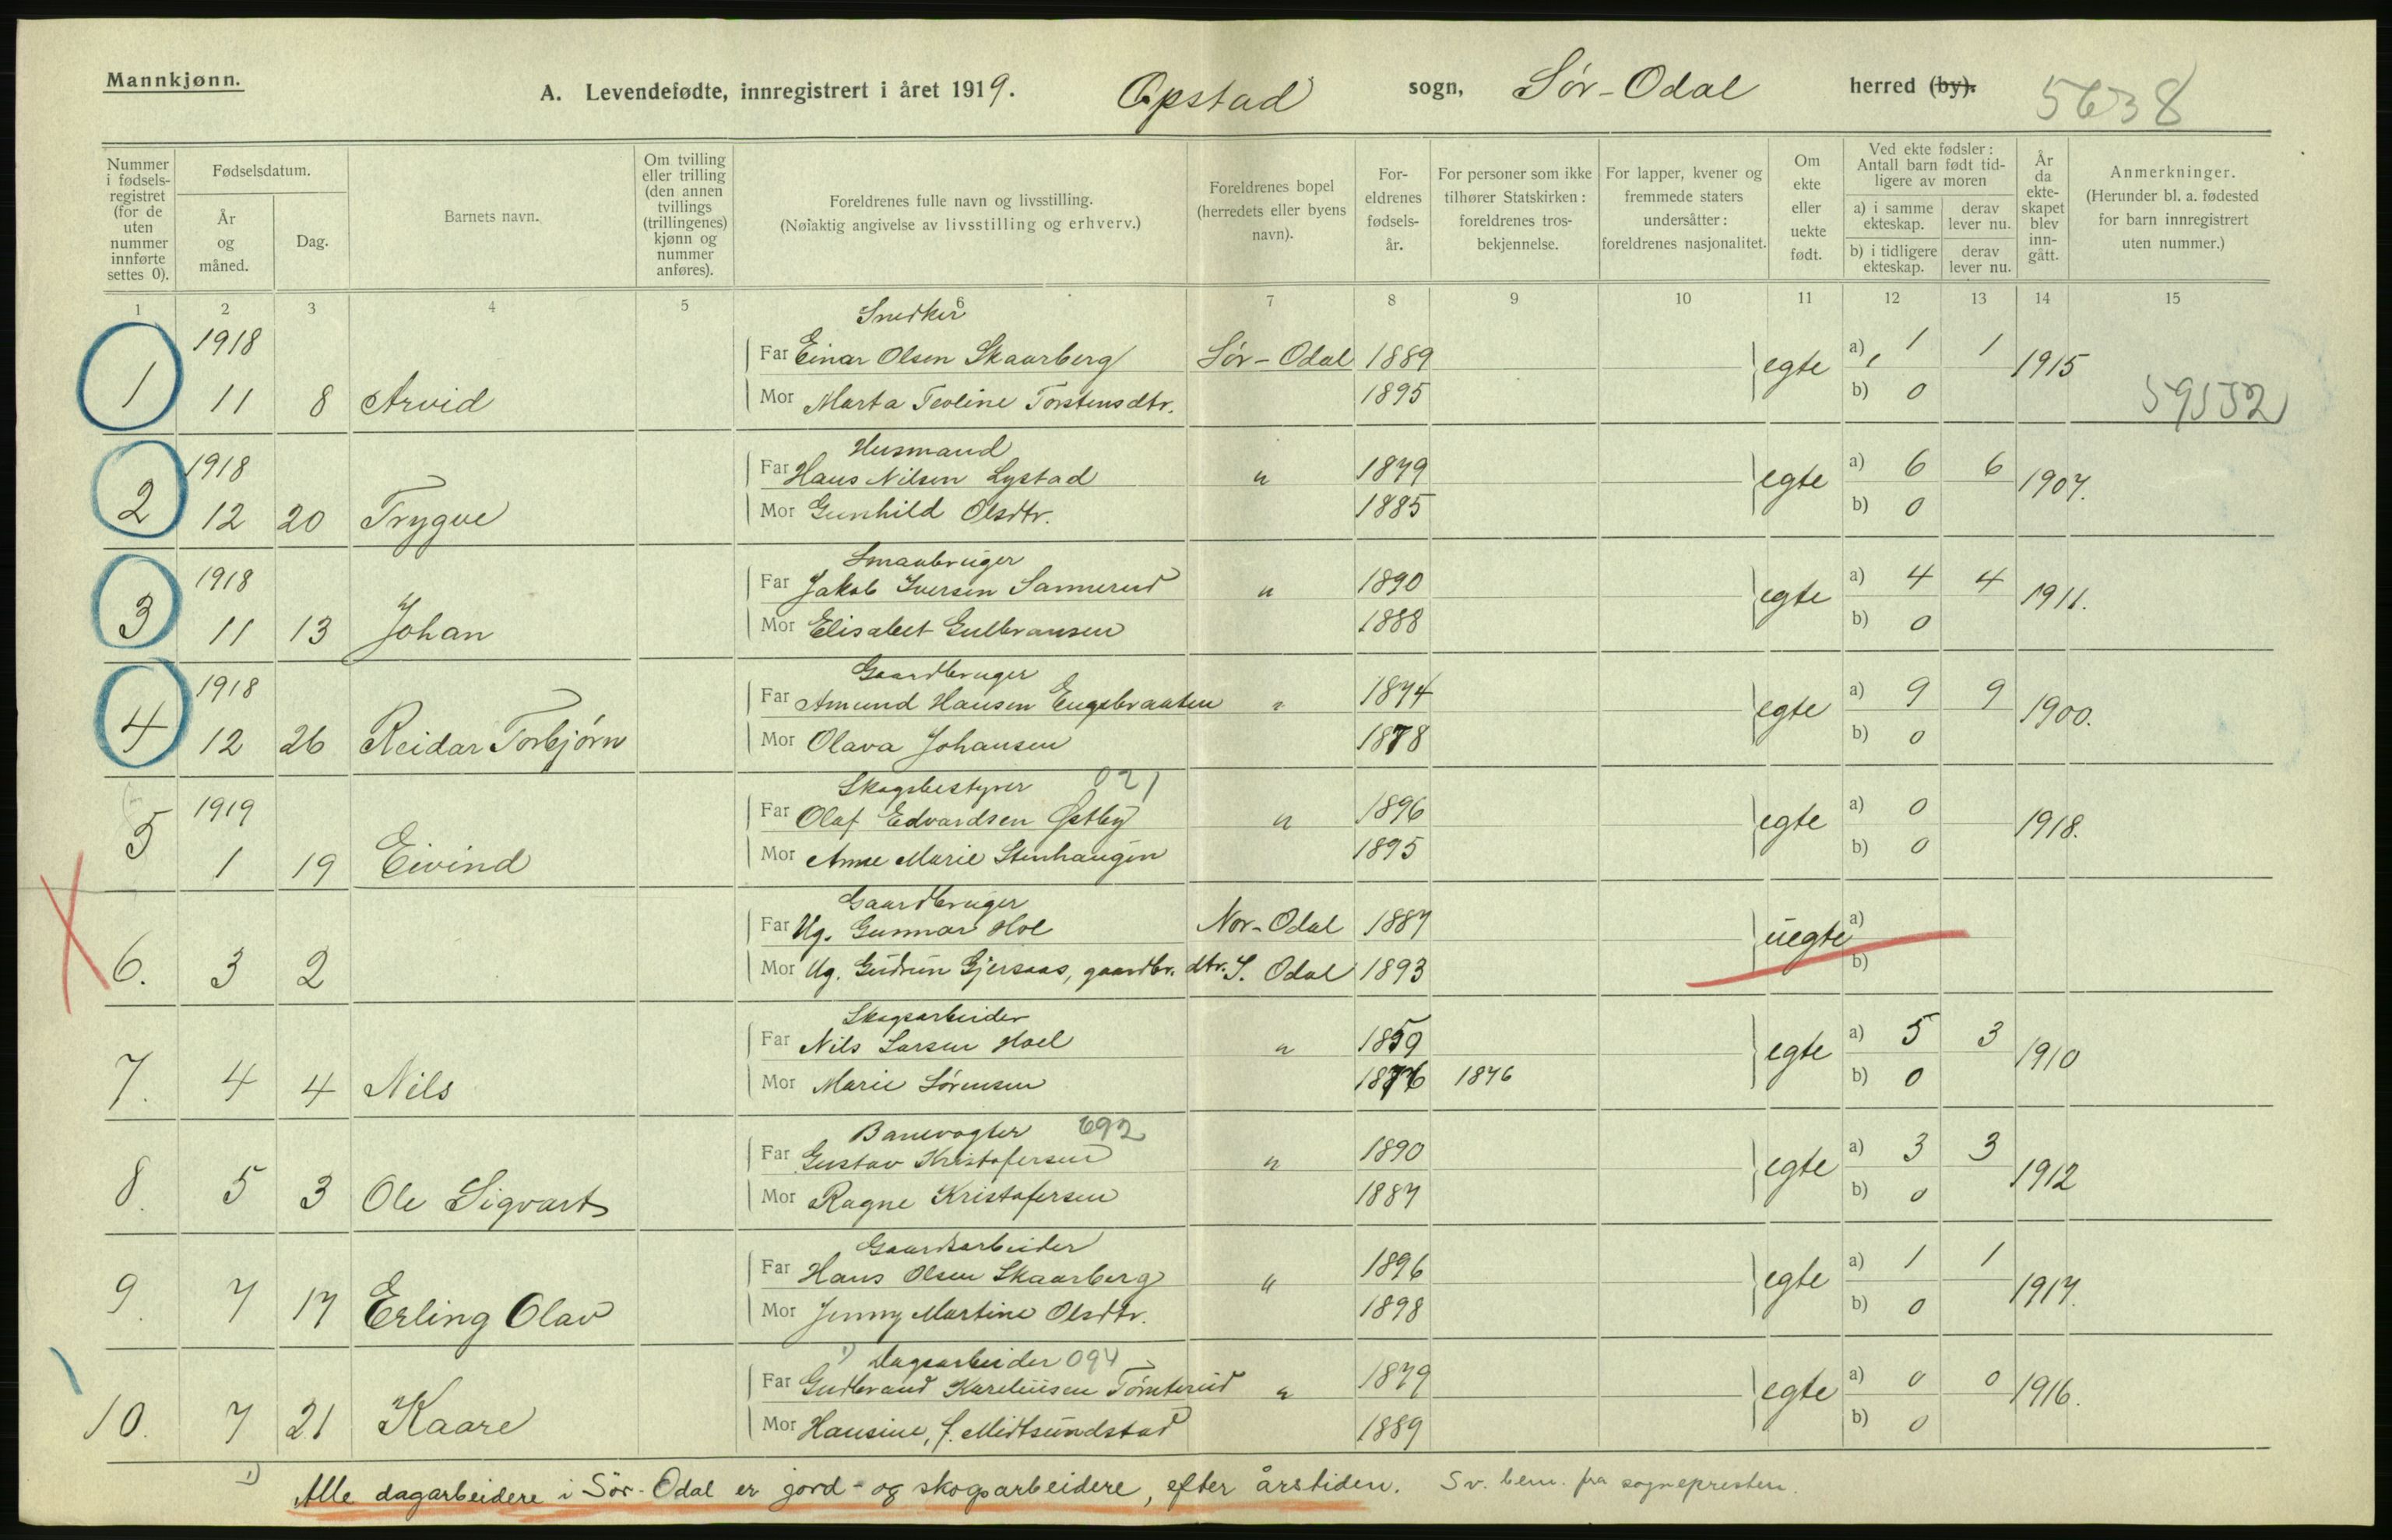 Mannkjønn.
A. Levendefødte, innregistrert i året 1919. Opstad sogn, Sør-Odal herred (by). 5638
Nummer i fødsels- registret (for de uten nummer innførte settes 0).
Fødselsdatum.
År og måned.
Dag.
Barnets navn.
Om tvilling eller trilling (den annen tvillings (trillingenes) kjønn og nummer anføres).
Foreldrenes fulle navn og livsstilling.
(Nøiaktig angivelse av livsstilling og erhverv.)
Foreldrenes bopel (herredets eller byens navn).
For- eldrenes fødsels- år.
For personer som ikke tilhører Statskirken: foreldrenes tros- bekjennelse.
For lapper, kvener og fremmede staters undersåtter: foreldrenes nasjonalitet.
Om ekte eller uekte født.
Ved ekte fødsler: Antall barn født tid- ligere av moren
a) i samme ekteskap. derav lever nu.
b) i tidligere ekteskap. derav lever nu.
År da ekte- skapet blev inn- gått.
Anmerkninger.
(Herunder bl. a. fødested for barn innregistrert uten nummer.)
1 2 3 4 5 6 7 8 9 10 11 12 13 14 15
Snedker
1918 Far Einar Olsen Skaarberg Sør-Odal 1889 egte a) 1 1 1915
1 11 8 Arvid Mor Marta Teoline Torstensdtr. 1895 b) 0 59552
Husmand
1918 Far Hans Nilsen Lystad " 1879 egte a) 6 6 1907.
2 12 20 Trygve Mor Gunhild Olsdtr. 1885 b) 0
Smaabruger
1918 Far Jakob Iversen Sannerud " 1890 egte a) 4 4 1911.
3 11 13 Johan Mor Elisabet Gulbransen 1888 b) 0
Gaardbruger
1918 Far Amund Hansen Engebraaten " 1874 egte a) 9 9 1900.
4 12 26 Reidar Torbjørn Mor Olava Johansen 1878 b) 0
Skogbestyrer 021
1919 Far Olaf Edvardsen Østby " 1896 egte a) 0 1918.
5 1 19 Eivind Mor Anne Marie Stenhaugen 1895 b) 0
Gaardbruger
Far Ug. Gunnar Hol Nor-Odal 1887 uegte a)
6. 3 2 Mor Ug. Gudrun Gjersaas, gaardbr. dtr. S. Odal 1893 b)
Skogsarbeider
Far Nils Larsen Hoel " 1859 egte a) 5 3 1910
7. 4 4 Nils Mor Marie Sørensen 1876 1876 b) 0
Banevogter 692
Far Gustav Kristofersen " 1890 egte a) 3 3 1912
8. 5 3 Ole Sigvart Mor Ragne Kristofersen 1887 b) 0
Gaardsarbeider
Far Hans Olsen Skaarberg " 1896 egte a) 1 1 1917.
9. 7 17 Erling Olav Mor Jenny Martine Olsdtr. 1898 b) 0
1) Dagsarbeider 094
Far Gudbrand Kareliusen Tømterud " 1879 egte a) 0 0 1916.
10. 7 21 Kaare Mor Hansine, f. Midtsundstad 1889 b) 0
1) Alle dagarbeidere i Sör-Odal er jord- og skogsarbeidere, efter årstiden. Sv. bem. fra sognepresten.